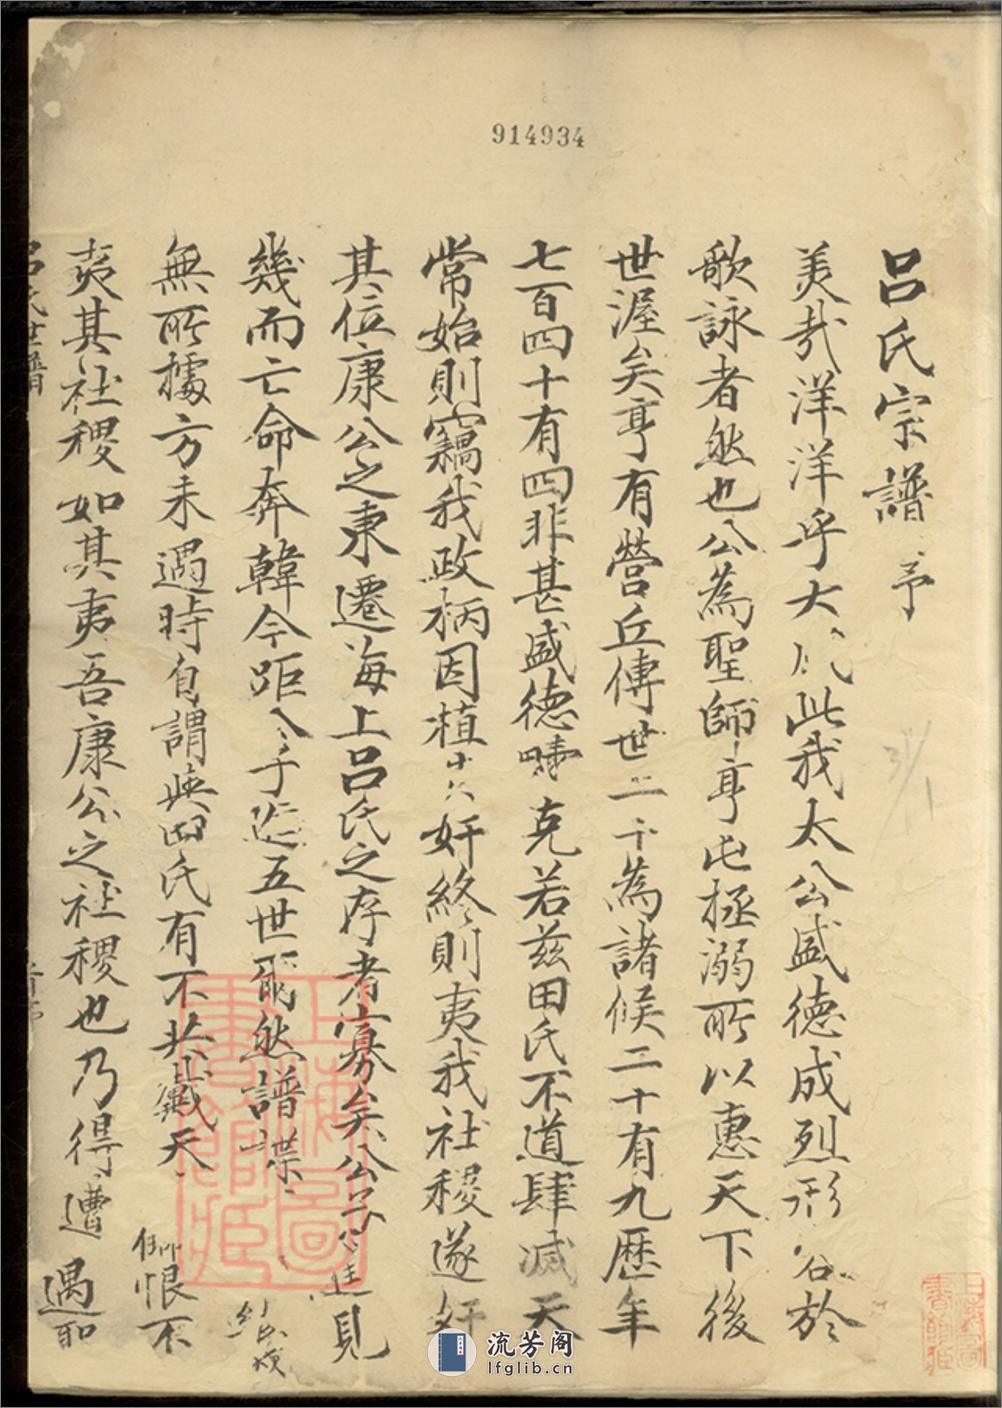 914934
呂氏宗譜序
美哉洋洋乎大此我太公盛德成烈形容於
歌詠者然也公為聖師亨屯拯溺所以惠天下後
世渥矣享有營丘傳世二十為諸侯二十有九歷年
七百四十有四非甚盛德疇克若茲田氏不道肆滅天
常始則竊我政柄因植奸終則夷我社稷遂奸
其位康公之東遷海上呂氏之存者寡矣公見
幾而亡命奔韓今距五世爾然譜牒
無所據方未遇時自謂與田氏有不共戴天
恨不
夷其社稷如其夷吾康公之社稷也乃得遭遇
呂氏世譜
上海圖書館藏
上海圖書館藏
流芳阁
lfglib.cn